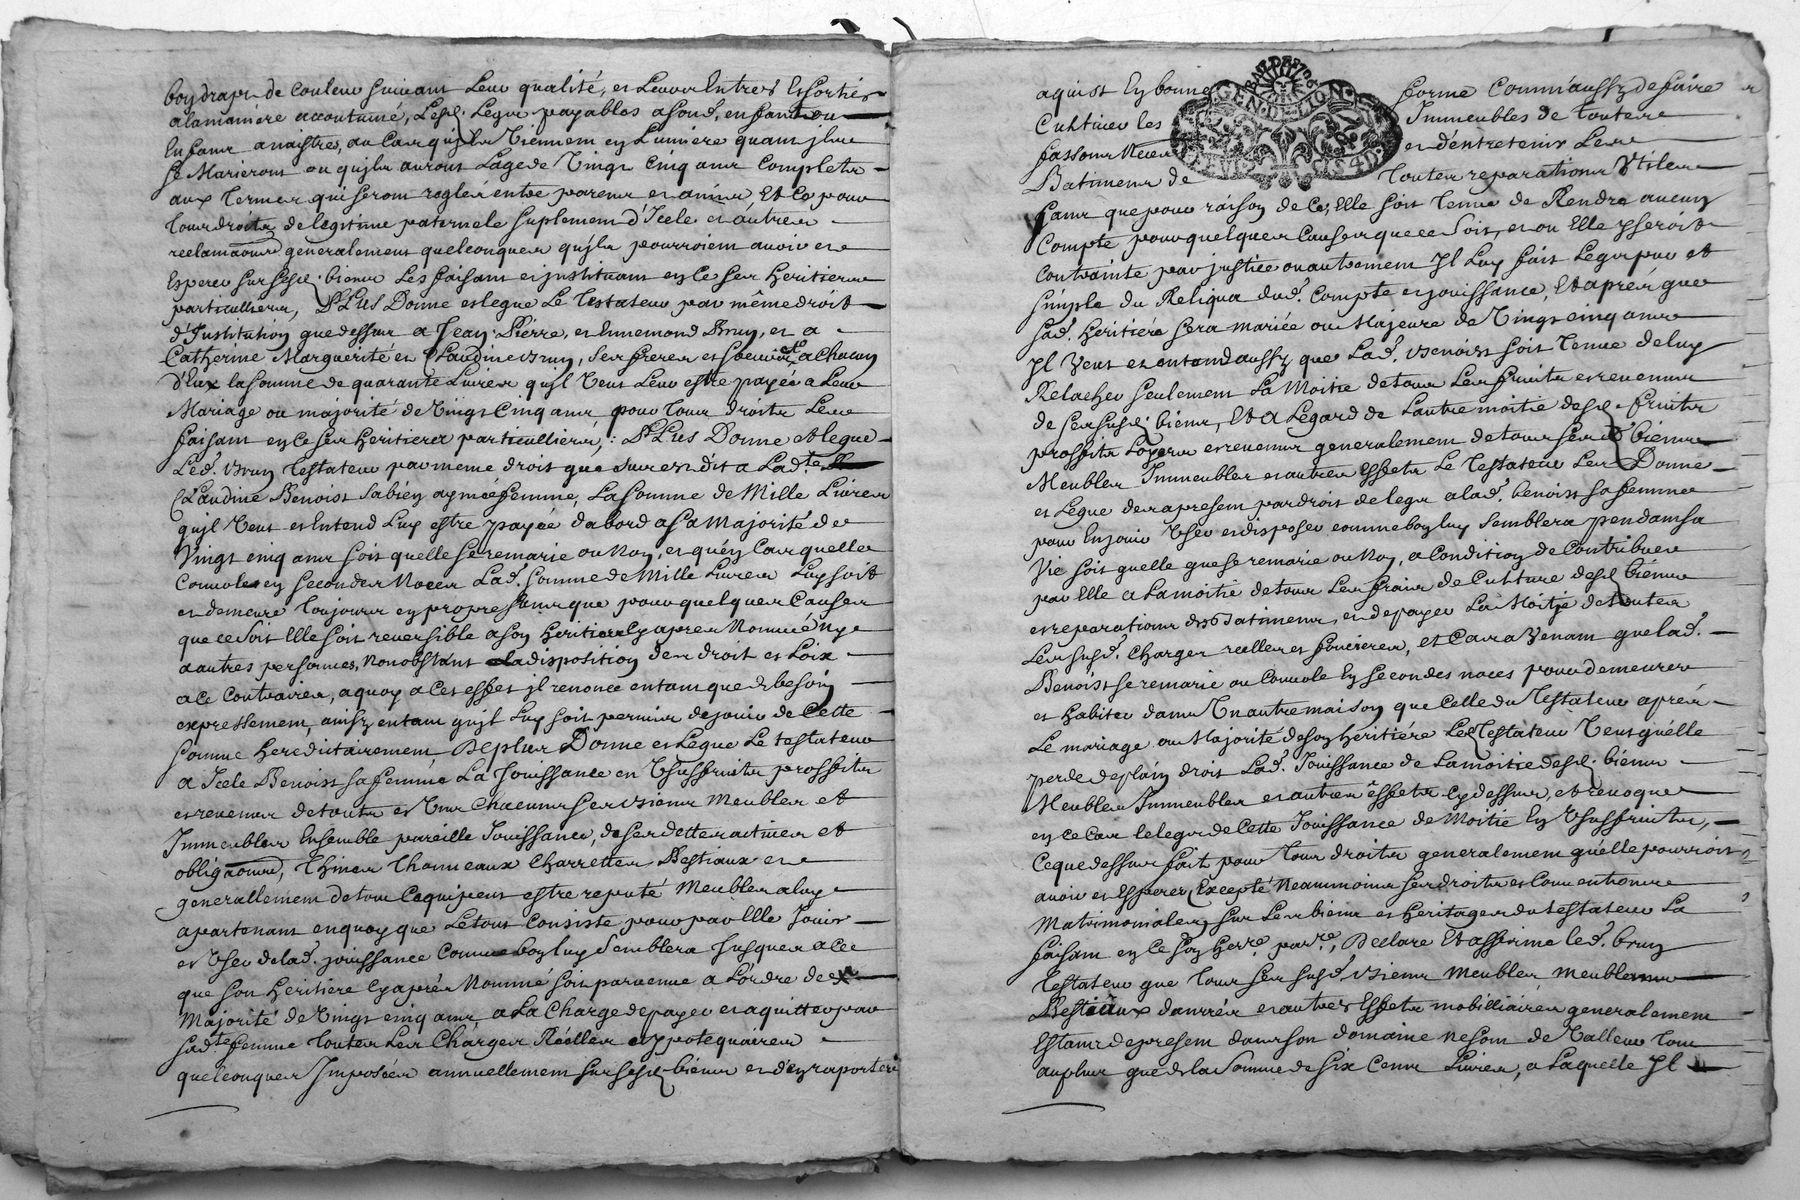 boy drap de couleur suivant leur qualité, et leurs Entrées Et sorties
alamaniére accoutumé, Lesd. Legs payables asond. enfant ou
Enfans anaistre, au Cas quils Viennent en Lumiere quant ils
se Marieront ou quils auront Lagede Vingt Cinq ans Completes
aux termes qui seront reglés entre parens et amis, Et Ce pour
tous droits delegitime paternele suplement d'Icele et autres
reclamaons generalement quelconques quils pourroient avoir et
Esperer sur sesd. biens Les faisant et instituant en Ce ses heritiers
particulliers, PLUS Donne et legue Le Testateur par même droit
d'Institution que dessus a Jean Pierre, et Ennemond Brun, et a
Catherine Marguerite et Claudine Brun, ses freres et soeurs a Chacun
d'Eux la somme de quarante Livres quil Veut Leur estre payée a Leur
Mariage ou majorité de Vingt Cinq ans, pour tous droits Les
faisant en Ce ses heritiers particulliers, : PLUS Donne et legue
Led. Brun Testateur par meme droit que sus est dit a Lad.te
Claudine Benoist sa bien aymée femme, La somme de Mille Livres
quil Veut et Entend Luy estre payée dabord asa Majorité de
Vingt cinq ans soit quelle se remarie ou Non, et quen Cas quelle
Convole en secondes Noces Lad. somme de Mille Livres Luy soit
et demeure toujours en propre sans que pour quelques Causes
que ce soit Elle soit reversible a son heritiere Cy apres Nommée Ny a
dautres personnes, nonobstant la disposition des droit et Loix
a Ce Contraires, a quoy a Cet effet il renonce entant que de besoin
expressement, ainsy entant quil Luy soit permis de jouir de Cette
somme hereditairement De plus Donne et Legue Le testateur
a Icele Benoist sa femme La Jouissance en Usuffruits proffits
et revenus de touts et Uns Chacuns ses Biens Meubles et
Immeubles Ensemble pareille Jouissance, de ses dettes actives et
obligaons, Thines Thonneaux Charrettes Bestiaux et
generallement de tout Cequi peut estre reputé Meubles a luy
apartenant en quoy que Le tout Consiste pour par Elle Jouir
et User delad. jouissance Comme bon luy semblera Jusques a Ce
que son heritiere Cy aprés Nommé soit parvenue a L'ordre de
Majorité de Vingt cinq ans, a La Charge de payer et aquitter par
sad.te femme toutes Les Charges Réélles et ypotequaires
quelconques Imposées annuellement sur sesd. biens et d'en raporter
aquist En bonne forme Comm'aussy de faire
Cultiver les Immeubles de toutes
fassons et d'entretenir Les
Batimens de toutes reparations Utiles
sans que pour raison de Ce, Elle soit tenue de Rendre aucun
Compte pour quelques Causes que ce soit, et ou Elle y seroit
Contrainte par justice ou autrement Il Luy fait Legs pur et
simple du Reliqua dud. Compte et jouissance, Et aprés que
sad. heritiére sera mariée ou Majeure de Vingt cinq ans
Il Veut et entend aussy que Lad. Benoist soit tenue de luy
Relacher seulement La Moitie de tous Les fruits et revenus
de ses susd. biens, Et a Legard de Lautre moitie desd. fruits
proffits Loyers et revenus generalement de tous ses d. biens
Meubles Immeubles et autres Effets Le Testateur Les Donne
et Legue des apresent par droit de legs a lad. benoist sa femme
pour En jouir User et disposer comme bon luy semblera pendant sa
Vie soit quelle que se remarie ou Non, a Condition de Contribuer
par Elle a La moitié de tous Les frais de Culture desd. biens
et reparations des Batimens, et de payer La Moitie de toutes
Les susd. Charges reelles et foncieres, et Cas avenant que lad.
Benoist se remarie ou Convole En secondes noces pour demeurer
et habiter dans Un autre maison que Celle du Testateur aprés
Le mariage ou Majorité de son heritiére Led. Testateur Veut qu'elle
perde de plain droit Lad. Jouissance de La moitié desd. biens
Meubles Immeubles et autres effets cy dessus, et revoque
en ce Cas le legs de Cette Jouissance de Moitie En Usuffruits,
Ceque dessus fait pour tous droits generalement qu'elle pourroit
avoir et Esperer, Excepté Neammoins ses droits et Conventions
Matrimoniales sur Les biens et heritages du testateur La
faisant en Ce son her.re par.re, Declare Et affirme led. brun
Testateur que tous ses susd. Biens Meubles Meublans
Bestiaux danrrées et autres Effets mobilliaires generalement
Estant de present dans son domaine ne sont de Valleur tout
au plus que de la somme de six Cent Livres, a Laquelle Il